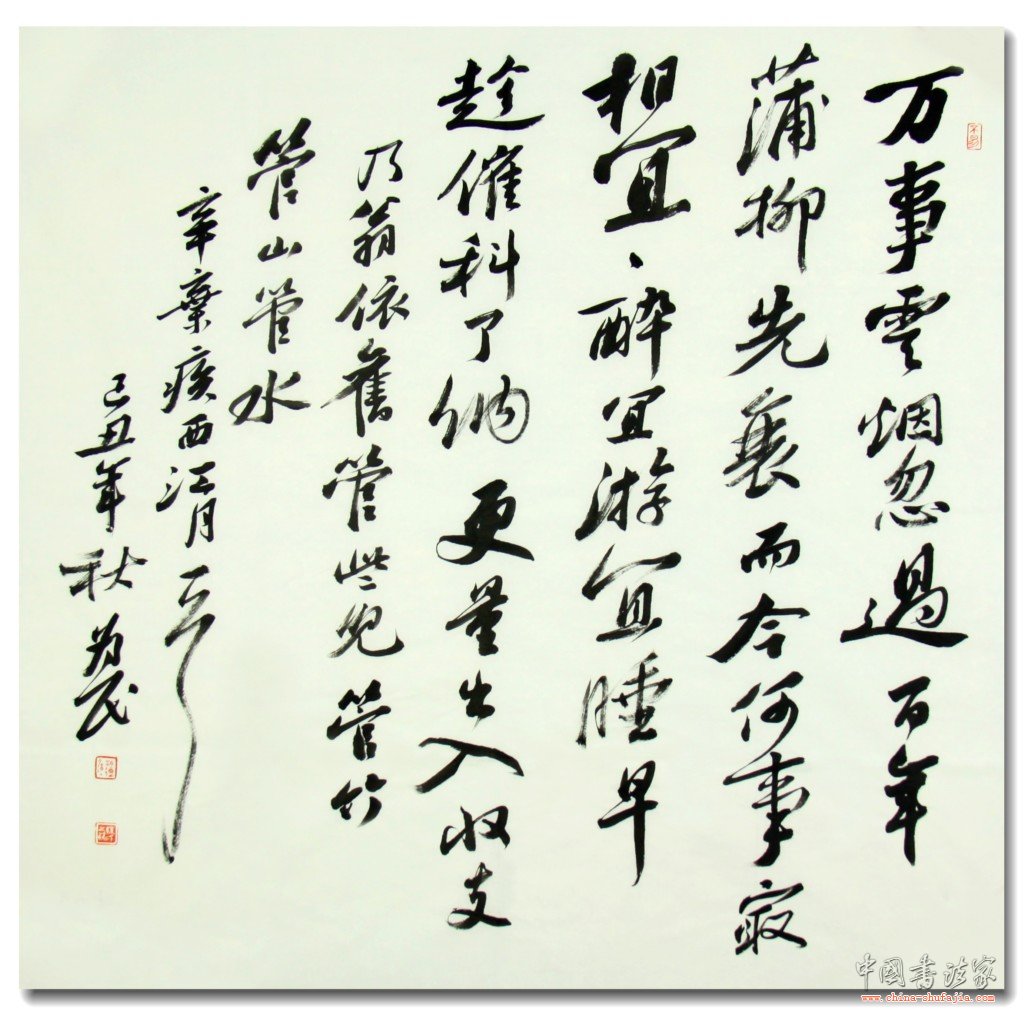 万事雲烟忽過百年
蒲柳先衰而今何事最
相宜、醉宜游宜睡早
趁催科了纳更量出入收支
乃翁依舊管些兒管竹
管山管水
辛棄疾西江月一首
己丑年秋為民
中國书法家
www.china-shufajia.com